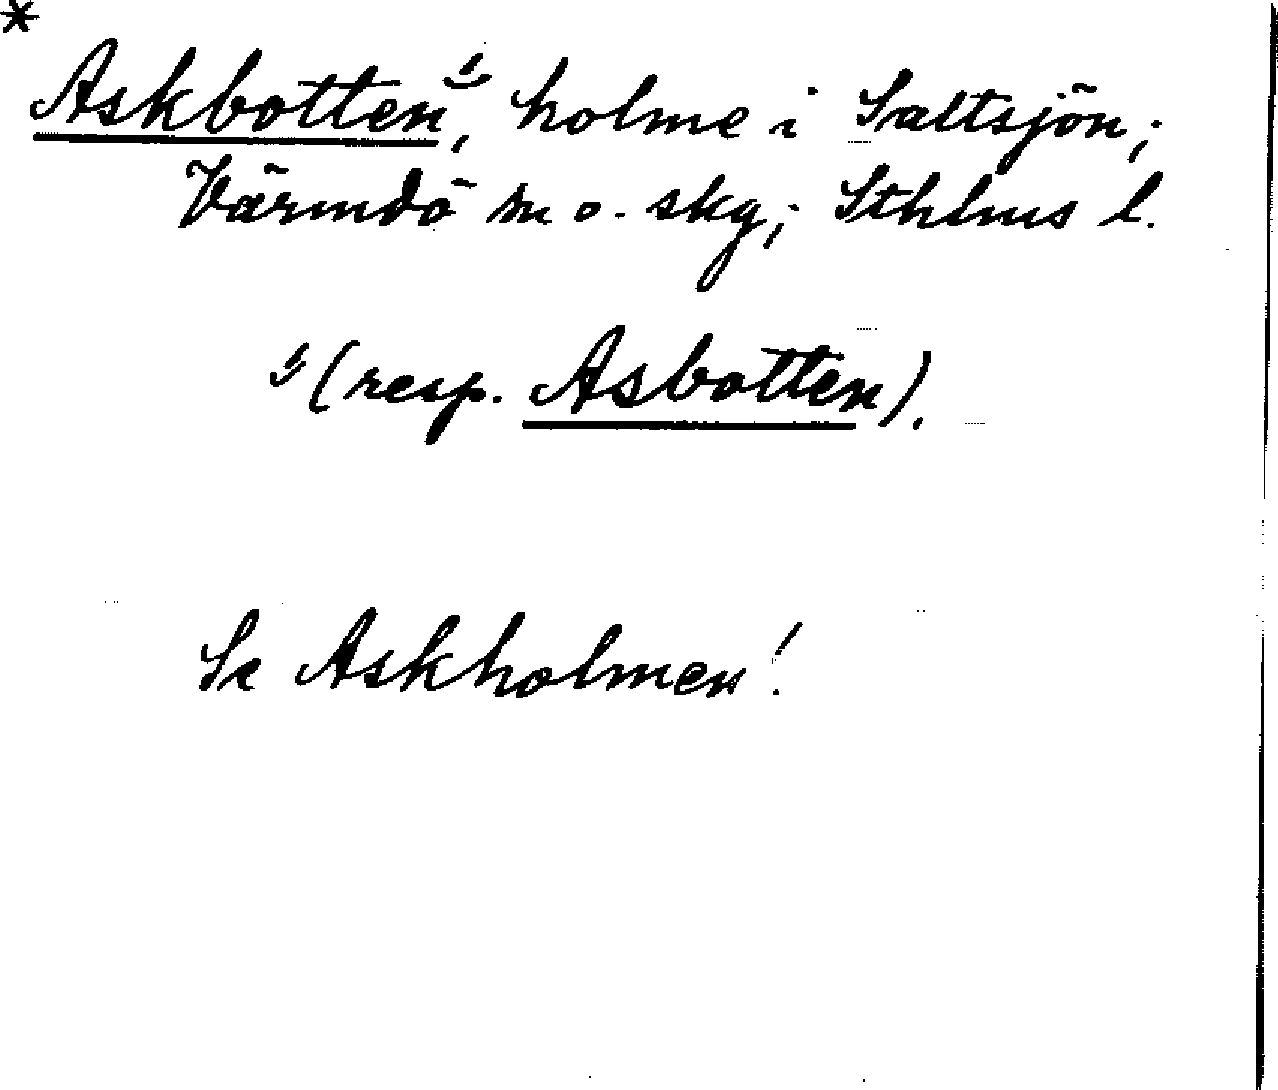 *
Askbotten, holme i Saltsjön;
Värmdö m o. skg; Sthlms l.
(resp. Asbotten).
Se Askholmen!